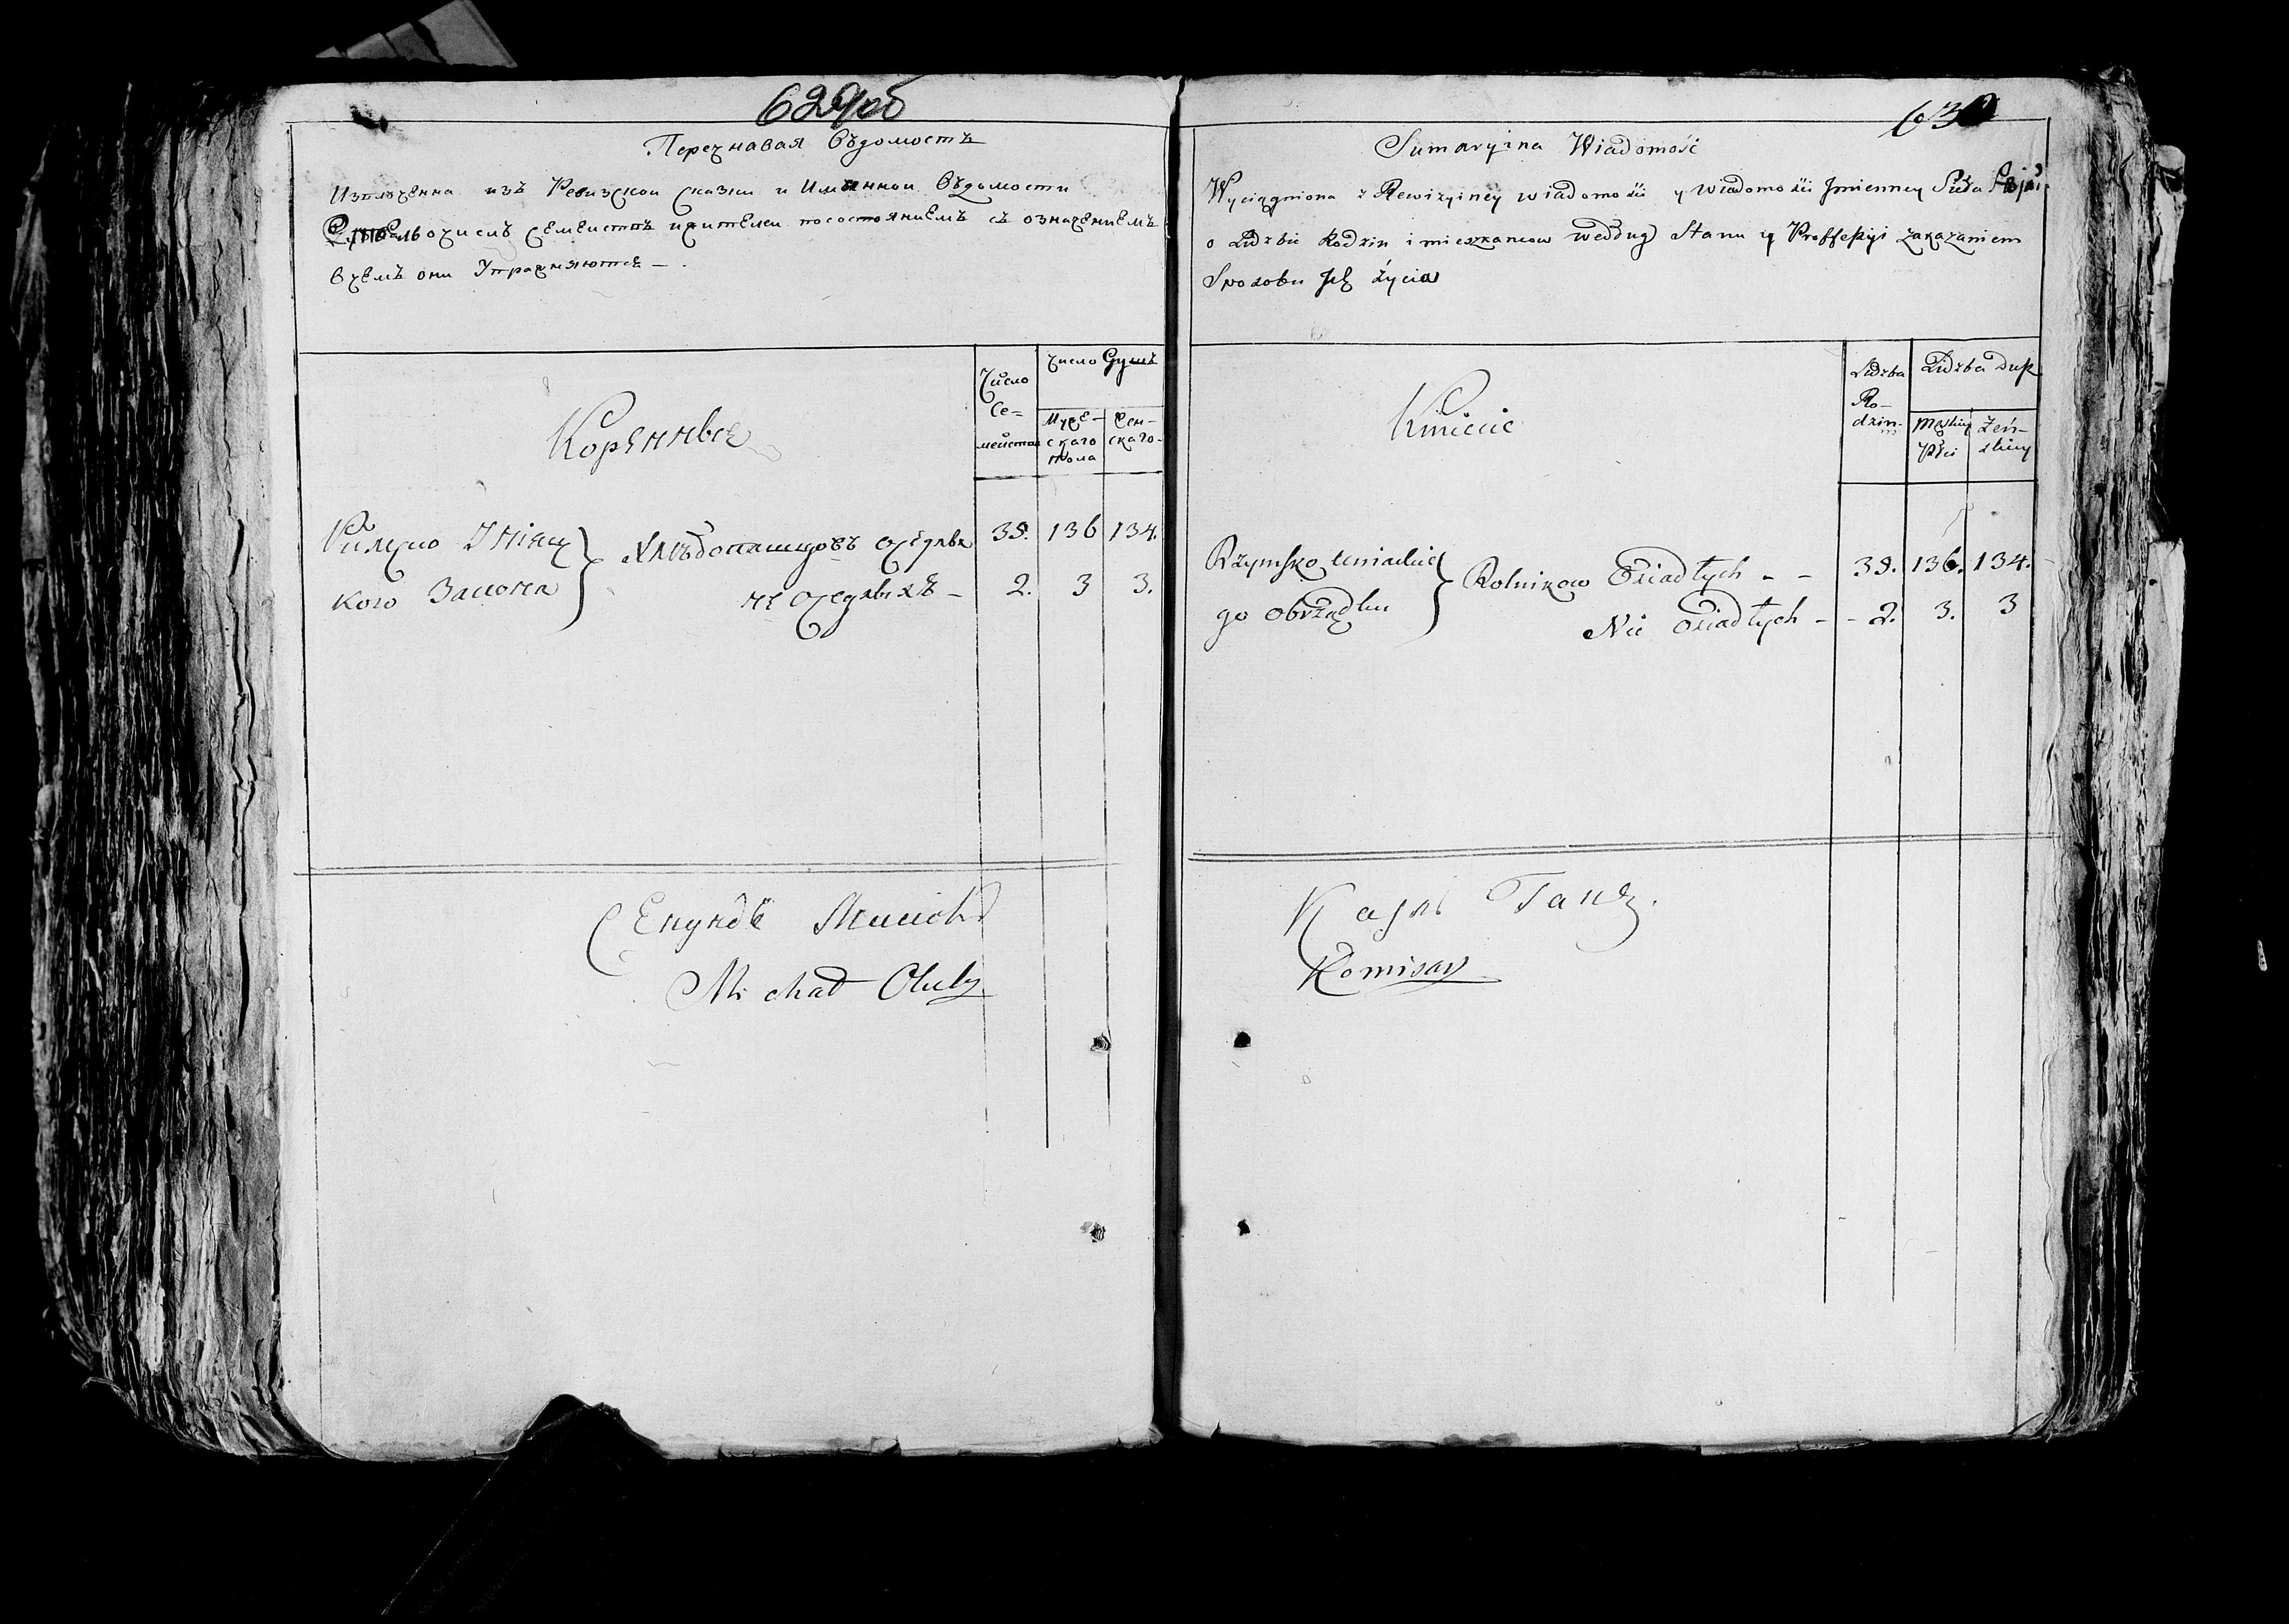 629 об
Перечнавая Вѣдомость
Извлечена изъ Ревизской сказки и Имянной Вѣдомости
о числѣ семействъ и жителей по состояниемъ съ означениемъ
в чемъ они Упражняются –.
Число Се= мействъ
число Душъ
Муже– скаго пола
Жен– скаго–
Коренные
Римско Унияц кого Закона } Хлѣбопашцовъ осѣдлыхъ 39. 136 134.
не осѣдлыхъ – 2. 3 3.
Michał
630
Sumaryina Wiadomość
Wyciągniona z Rewizyiney wiadomości y wiadomości Jmienney
o Liczbie Rodzin i mieszkancow według Stanu y Proffessyi zakazaniem
Sposobu Jch życia
Liczba Ro– dzin
Liczba dusz
męskiey Płci
żeń– skiey
Kmiecie
Rzymsko Uniackie go Obrządku } Rolnikow Osiadłych – – 39. 136. 134.
Nie Osiadłych – – 2. 3. 3
Komisarz